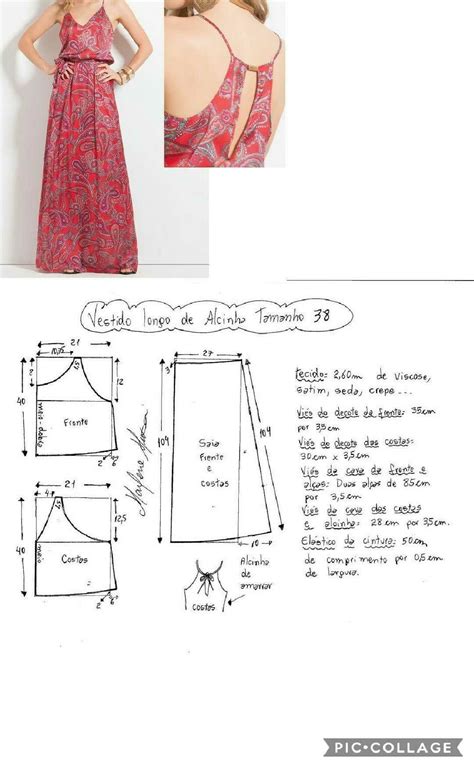 Vestido longo de Alcinha Tamanho 38
21
10,5
2
15
12
40
meio-dobra
Frente
2
6
21
4
12,5
40
meio
Costas
2
6
27
3
104
104
Saia
frente
e
costas
10
Alcinha
de
amarrar
costas
tecido: 2,60m de viscose,
satim, seda, crepe...
Viés do decote da frente: 35cm
por 3,5cm
Viés do decote das costas:
30cm x 3,5cm
Viés da cava da frente e
alças: Duas alças de 85cm
por 3,5cm
Viés da cava das costas
e alcinha: 28cm por 3,5cm.
Elástico da cintura: 50cm
de comprimento por 0,5cm
de largura.
PIC•COLLAGE